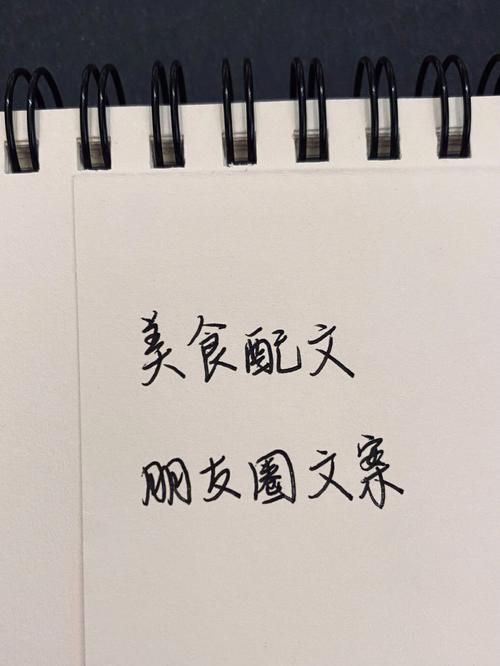 美食配文
朋友圈文案